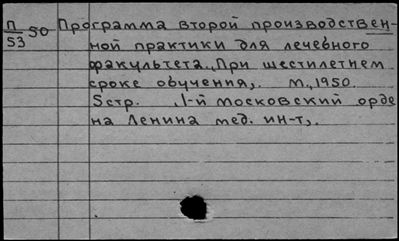 П/53 50 Программа второй производствен-
ной практики для лечебного
факультета. При шестилетнем
сроке обучения,. М., 1950.
5стр. 1-й московский орде
на Ленина мед. ин-т,.